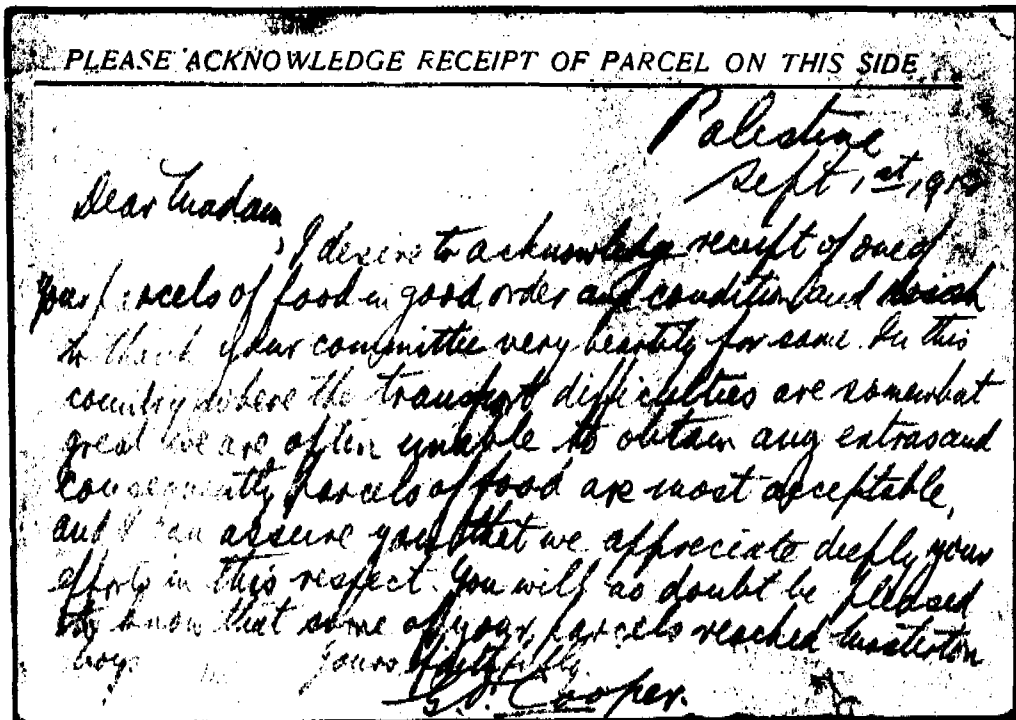 PLEASE ACKNOWLEDGE RECEIPT OF PARCEL ON THIS SIDE
Palestine
Sept 1st, 1918
Dear Madam,
I desire to acknowledge receipt of one of
your parcels of food in good order and condition and wish
to thank your committee very heartily for same. In this
country where the transport difficulties are somewhat
great we are often unable to obtain any extras and
consequently parcels of food are most acceptable,
and I can assure you that we appreciate deeply your
efforts in this respect. You will no doubt be pleased
to know that some of your parcels reached Masterton
boys
Yours faithfully
Cooper.